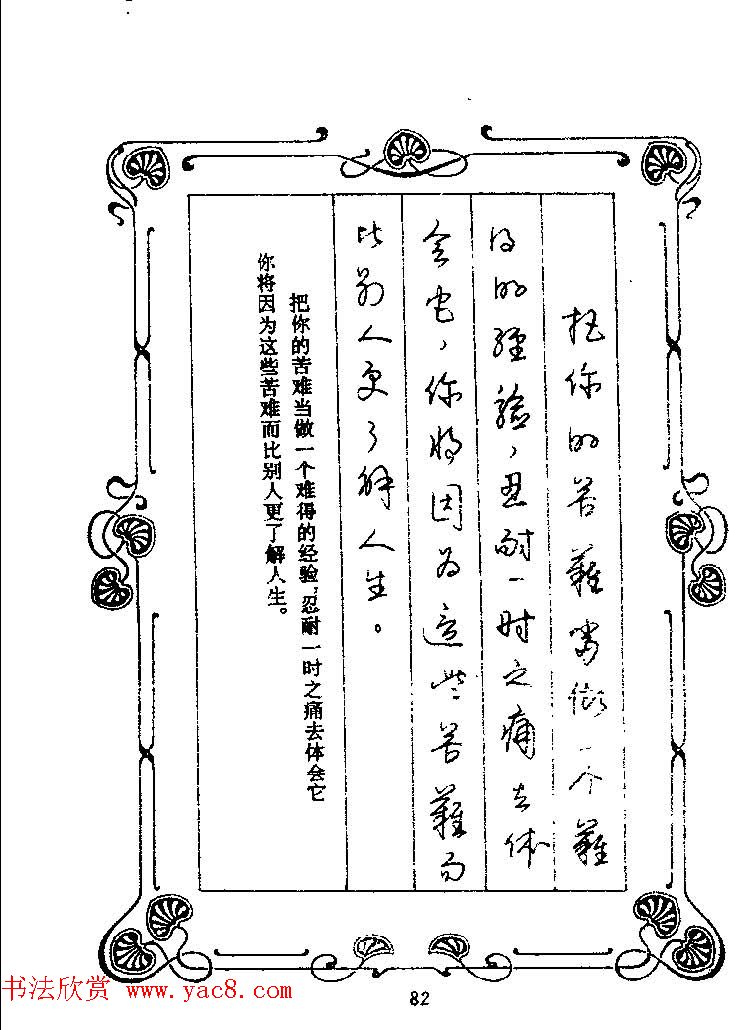 把你的苦難當做一个難
得的经验,忍耐一时之痛去体
会它,你将因为這些苦難而
比别人更了解人生。
把你的苦难当做一个难得的经验,忍耐一时之痛去体会它
你将因为这些苦难而比别人更了解人生。
书法欣赏 www.yac8.com
82